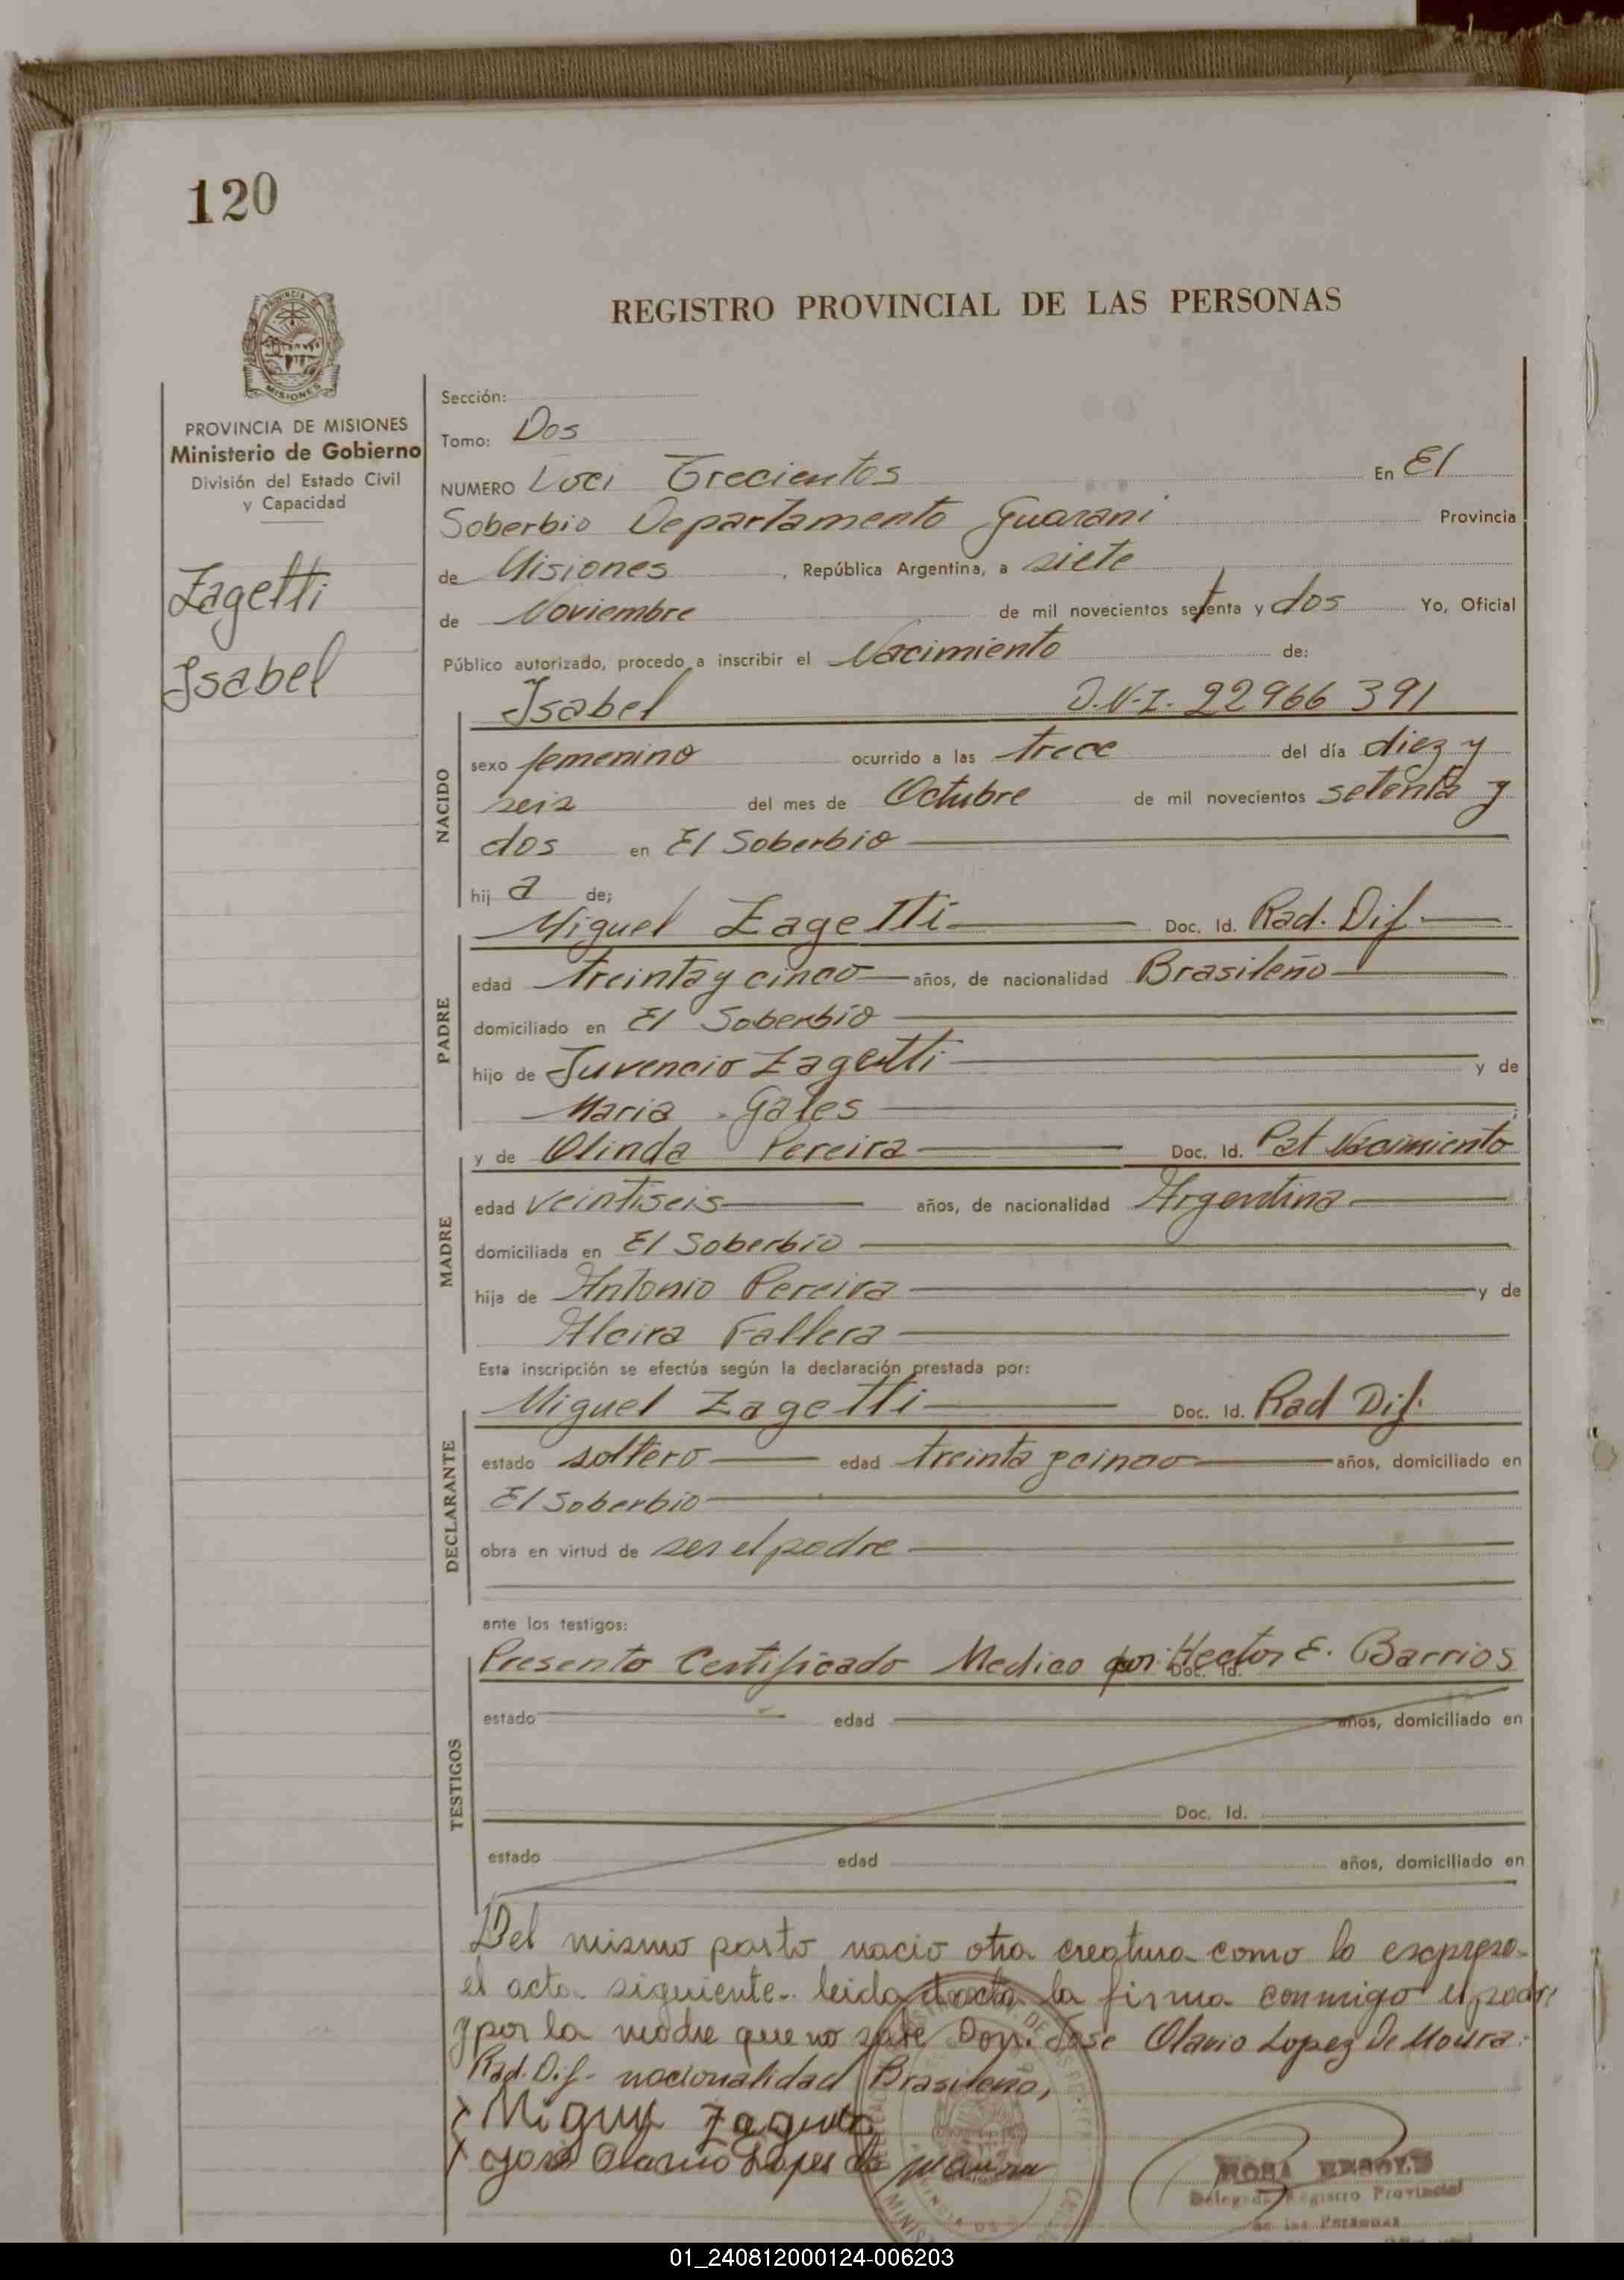 120
REGISTRO PROVINCIAL DE LAS PERSONAS
MISIONES
PROVINCIA DE MISIONES
Ministerio de Gobierno
División del Estado Civil
y Capacidad
Zagetti
Isabel
Sección:
Tomo: Dos
NUMERO Trecientos En El
Soberbio Departamento Guarani Provincia
de Misiones , República Argentina, a siete
de Noviembre de mil novecientos setenta y dos Yo, Oficial
Público autorizado, procedo a inscribir el Nacimiento de:
Isabel D.N.I. 22966391
NACIDO
sexo femenino ocurrido a las trece del día diez y
seis del mes de Octubre de mil novecientos setenta y
dos en El Soberbio
hij a de;
Miguel Zagetti Doc. Id. Rad. Dif.
PADRE
edad treinta y cinco años, de nacionalidad Brasileño
domiciliado en El Soberbio
hijo de Juvencio Zagetti y de
Maria Gales
MADRE
y de Olinda Pereira Doc. Id. Nacimiento
edad veintiseis años, de nacionalidad Argentina
domiciliada en El Soberbio
hija de Antonio Pereira y de
Alcira Fallera
Esta inscripción se efectúa según la declaración prestada por:
Miguel Zagetti Doc. Id. Rad Dif.
DECLARANTE
estado soltero edad treinta y cinco años, domiciliado en
El Soberbio
obra en virtud de ser el padre
ante los testigos:
Presento Certificado Medico por Hector E. Barrios
Doc. Id.
TESTIGOS
estado edad años, domiciliado en
Doc. Id.
estado edad años, domiciliado en
Del mismo parto nacio otra creatura como lo expresa
el acta siguiente. leida el acta la firma conmigo el padre
y por la madre que no sabe Don: Jose Olavio Lopez De Moura.
Rad. Dif. nacionalidad Brasileño,
Miguel
Jose Olavio Lopes de Moura
ROSA
Delegada Registro Provincial
de las Personas
01_240812000124-006203